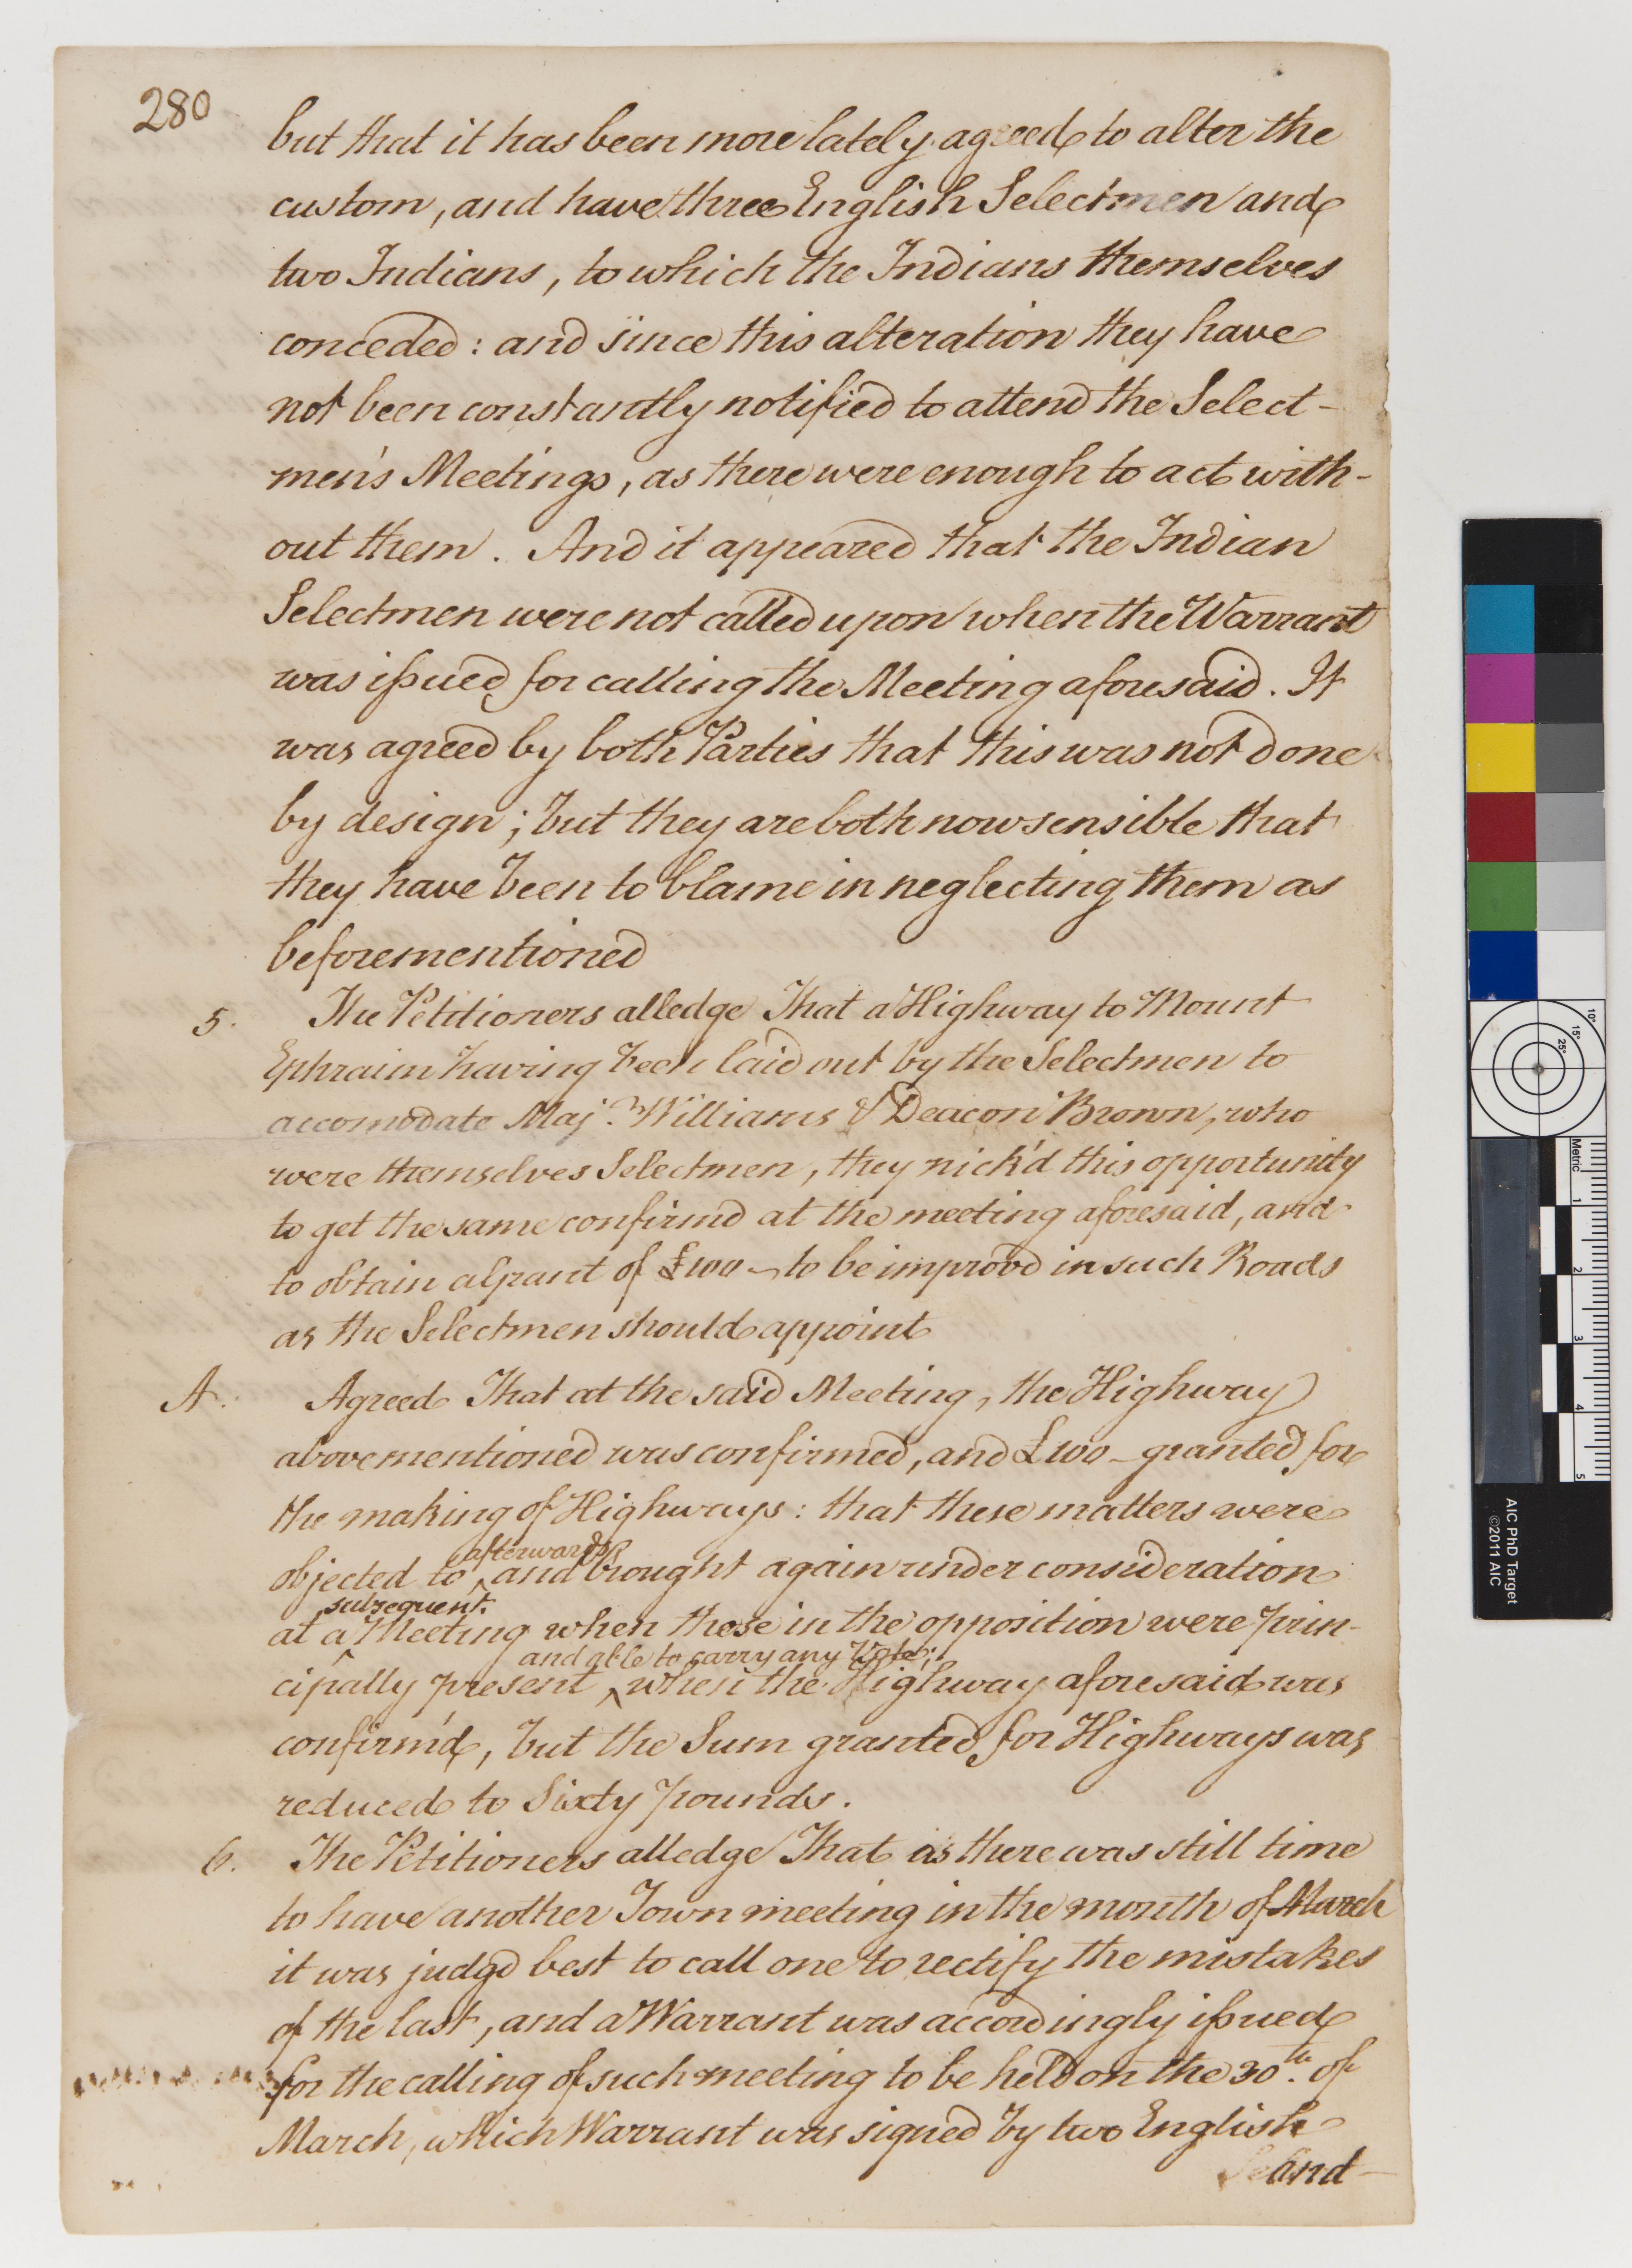 280
but that it has been more lately agreed to alter the
custom, and have three English Selectmen and
two Indians, to which the Indians themselves
conceded: and since this alteration they have
not been constantly notified to attend the Select-
men's Meetings, as there were enough to act with-
out them. And it appeared that the Indian
Selectmen were not called upon when the Warrant
was issued for calling the Meeting aforesaid. It
was agreed by both Parties that this was not done
by design; but they are both now sensible that
they have been to blame in neglecting them as
beforementioned
5. The Petitioners alledge That a Highway to Mount
Ephraim having been laid out by the Selectmen to
accomodate Maj.r Williams & Deacon Brown, who
were themselves Selectmen, they nick'd this opportunity
to get the same confirmd at the meeting aforesaid, and
to obtain a grant of £100 - to be improvd in such Roads
as the Selectmen should appoint
A. Agreed That at the said Meeting, the Highway
abovementioned was confirmed, and £100 - granted for
the making of Highways: that these matters were
afterwards
objected to ‸ and brought again under consideration
subsequent
at a ‸ Meeting when those in the opposition were prin-
and able to carry any Vote;
cipally present ‸ when the Highway aforesaid was
confirm'd, but the Sum granted for Highways was
reduced to Sixty pounds.
6. The Petitioners alledge That as there was still time
to have another Town meeting in the month of March
it was judgd best to call one to rectify the mistakes
of the last, and a Warrant was accordingly issued
for the calling of such meeting to be held on the 30th. of
March, which Warrant was signed by two English
and
10°
15°
25°
Metric
1
2
3
4
5
AIC PhD Target
©2011 AIC